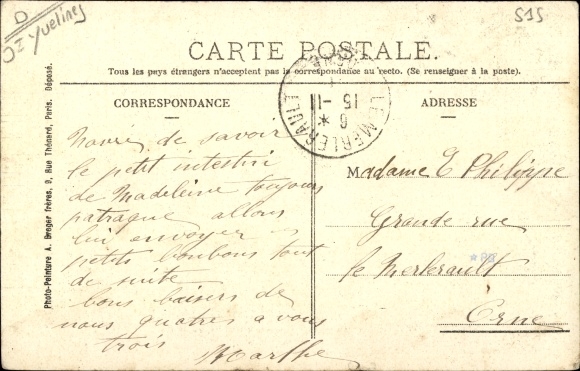 D
JI Yvelines
515
CARTE POSTALE.
Tous les pays étrangers n'acceptent pas la correspondance au recto. (Se renseigner à la poste).
CORRESPONDANCE
ADRESSE
LE MERLERAULT
15 - 11
6
*
Navrés de savoir
le petit intestin
de Madeleine toujours
patraque allons
lui envoyer
petits bonbons tout
de suite
bons baisers de
nous quatres a vous
trois
Marthe
Madame E Philippe
Grande rue
le Merlerault
Orne
Photo-Peinture A. Breger frères, 9, Rue Thénard, Paris. Déposé.